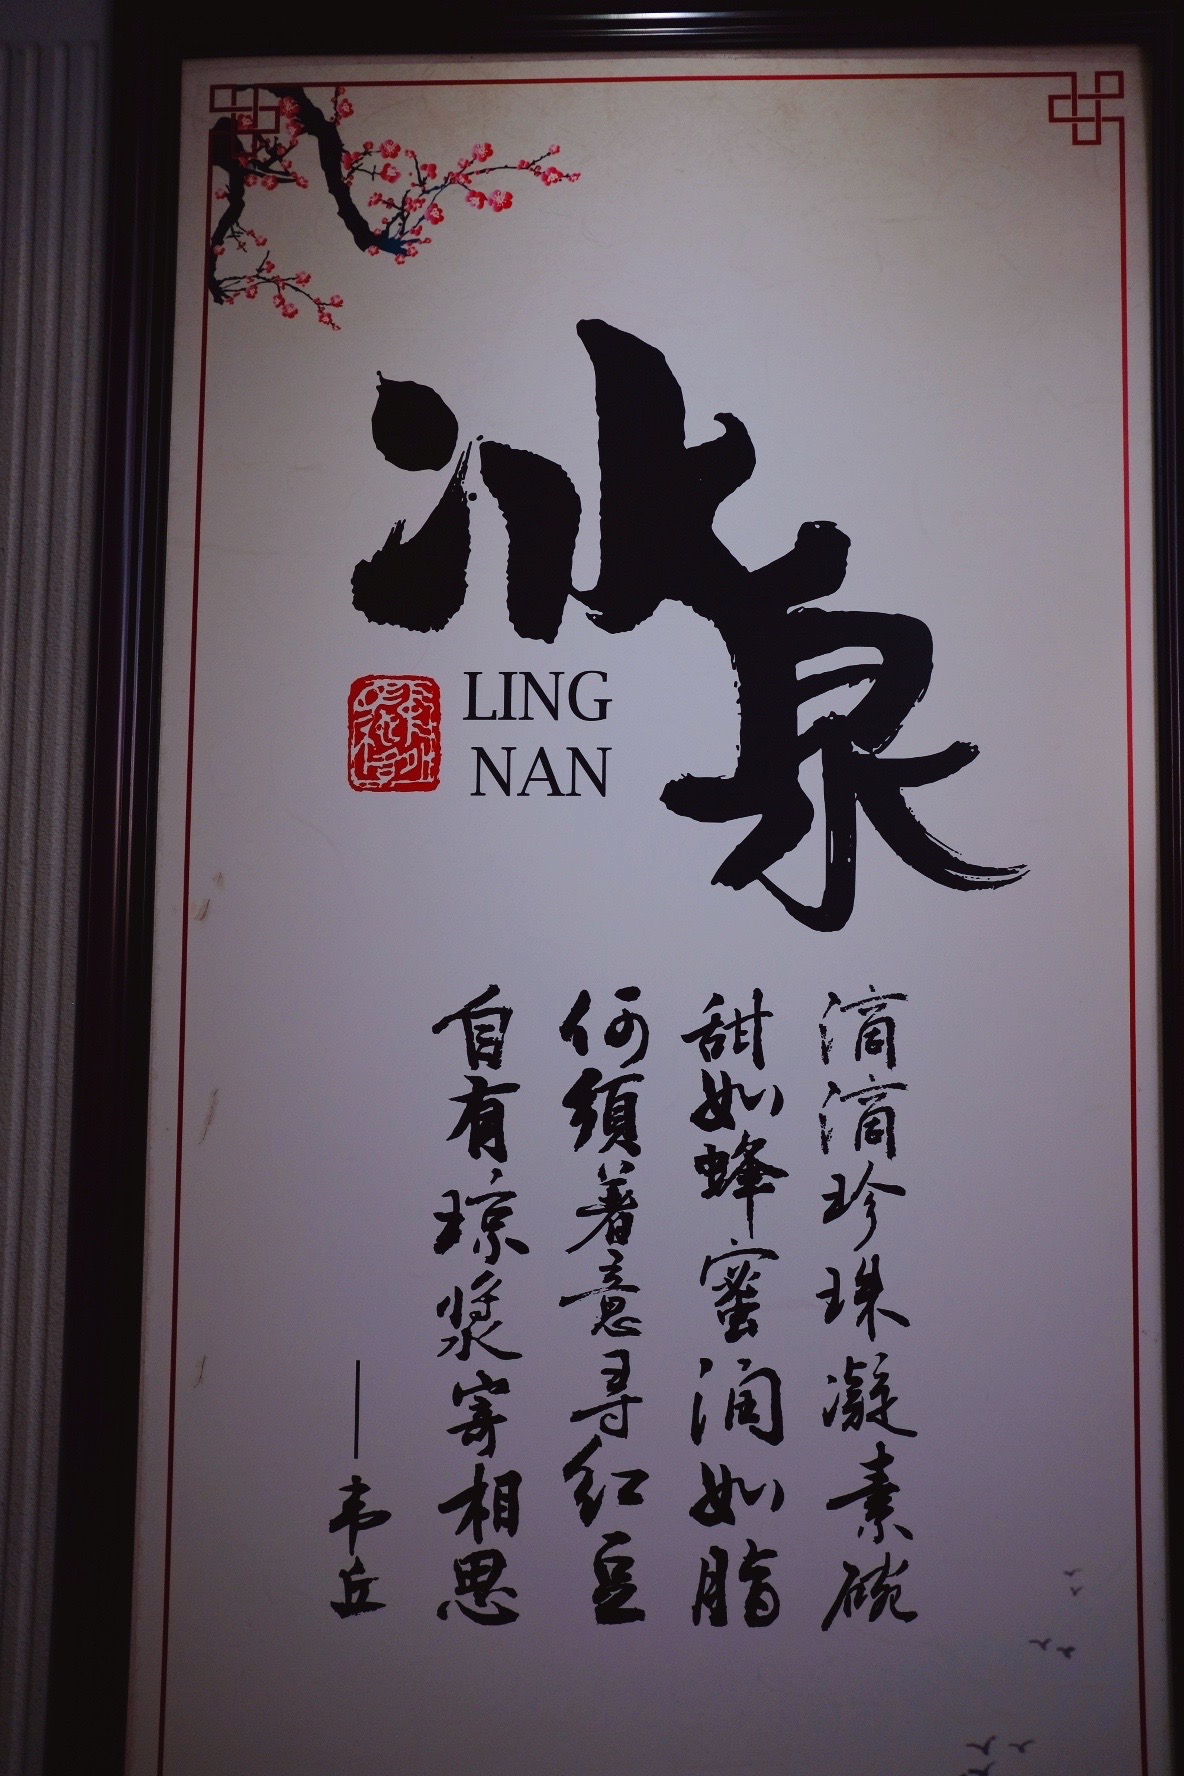 冰泉
LING
NAN
滴滴珍珠凝素碗
甜如蜂蜜润如脂
何须著意寻红豆
自有琼浆寄相思
——韦丘